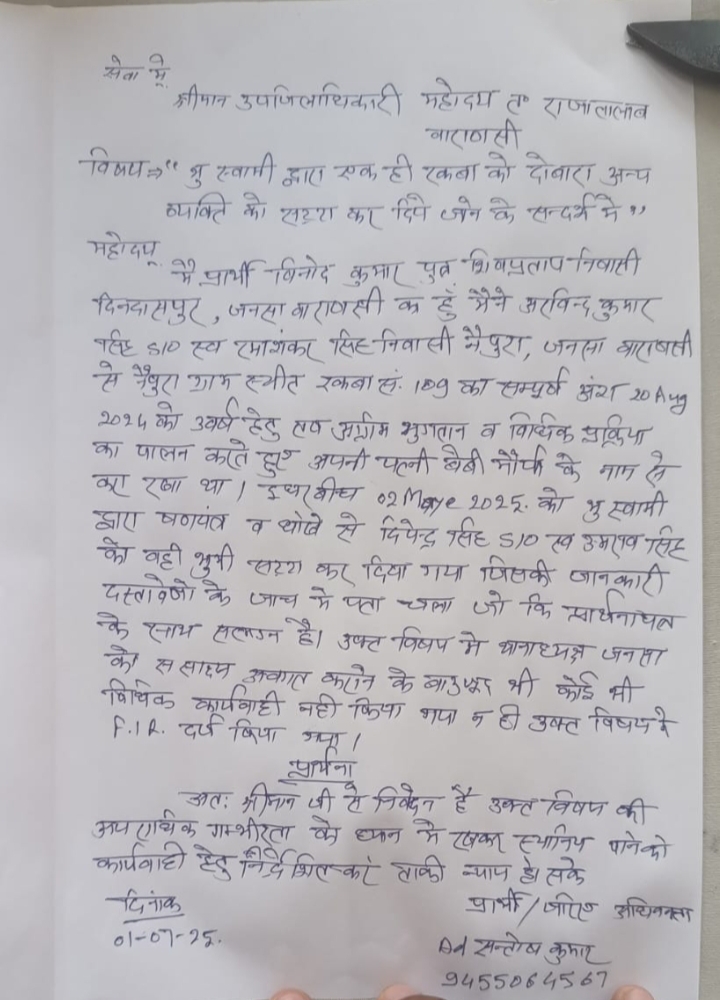 सेवा में,
श्रीमान उपजिलाधिकारी महोदय त॰ राजातालाब
वाराणसी
विषय⇒" भु स्वामी द्वारा एक ही रकबा को दोबारा अन्य
व्यक्ति को सट्टा कर दिये जाने के सन्दर्भ में"
महोदय,
मैं प्रार्थी विनोद कुमार पुत्र शिवप्रताप निवासी
दिनदासपुर, जनसा वाराणसी का हुँ मैने अरविन्द कुमार
सिंह S/O स्व रमाशंकर सिंह निवासी नैपुरा, जनसा वाराणसी
से नैपुरा ग्राम स्थीत रकबा सं. 109 का सम्पुर्ण अंश 20 Aug
2024 को 3वर्ष हेतु सब अग्रीम भुगतान व विधिक प्रक्रिया
का पालन करते हुए अपनी पत्नी बेबी मौर्या के नाम से
करा रखा था। इधर बीच 02 Maye 2025. को भु स्वामी
द्वारा षणयंत्र व धोखे से दिपेन्द्र सिंह S/O स्व उमराव सिंह
को वही भुमी सट्टा कर दिया गया जिसकी जानकारी
दस्तावेजो के जाच मे पता चला जो कि प्रार्थनापत्र
के साथ सलग्न है। उक्त विषय मे थानाध्यक्ष जनसा
को स साक्ष्य अवगत कराने के बावजूद भी कोई भी
विधिक कार्यवाही नही किया गया न ही उक्त विषय मे
F.I.R. दर्ज किया गया।
प्रार्थना
अतः श्रीमान जी से निवेदन है उक्त विषय की
अपराधिक गम्भीरता को ध्यान मे रखकर स्थानिय थाने को
कार्यवाही हेतु निर्देशित करें ताकी न्याय हो सके
दिनांक
प्रार्थी/जरिए अधिवक्ता
01-07-25.
Ad सन्तोष कुमार
9455064567